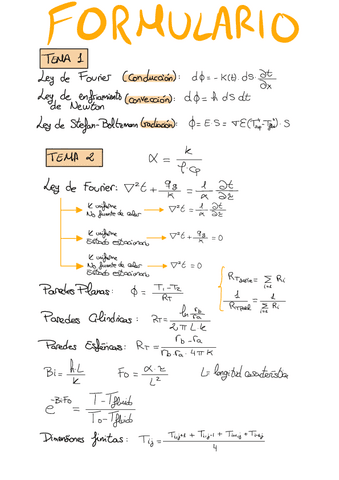 FORMULARIO
TEMA 1
Ley de Fourier (conducción): dϕ = -K(t) · dS · ∂t/∂x
Ley de enfriamiento de Newton (convección): dϕ = h dS dt
Ley de Stefan-Boltzmann (radiación): ϕ = E S = σE (T⁴sup - T⁴flu) · S
TEMA 2
α = K / ρ · cp
Ley de Fourier: ∇²t + qg/K = 1/α ∂t/∂z
K uniforme
No fuente de calor → ∇²t = 1/α ∂t/∂z
K uniforme
Estado estacionario → ∇²t + qg/K = 0
K uniforme
No fuente de calor → ∇²t = 0
Estado estacionario
Paredes Planas: ϕ = T₁ - T₂ / RT
RT serie = Σ Ri
1/RT paral = Σ 1/Ri
Paredes Cilíndricas: RT = ln rb/ra / 2πL·K
Paredes Esféricas: RT = rb - ra / rb ra · 4πK
Bi = h·L / K Fo = α·z / L² L = longitud característica
e^-BiFo = T - Tfluido / To - Tfluido
Dimensiones finitas: Ti,j = Ti,j+1 + Ti,j-1 + Ti+1,j + Ti-1,j / 4